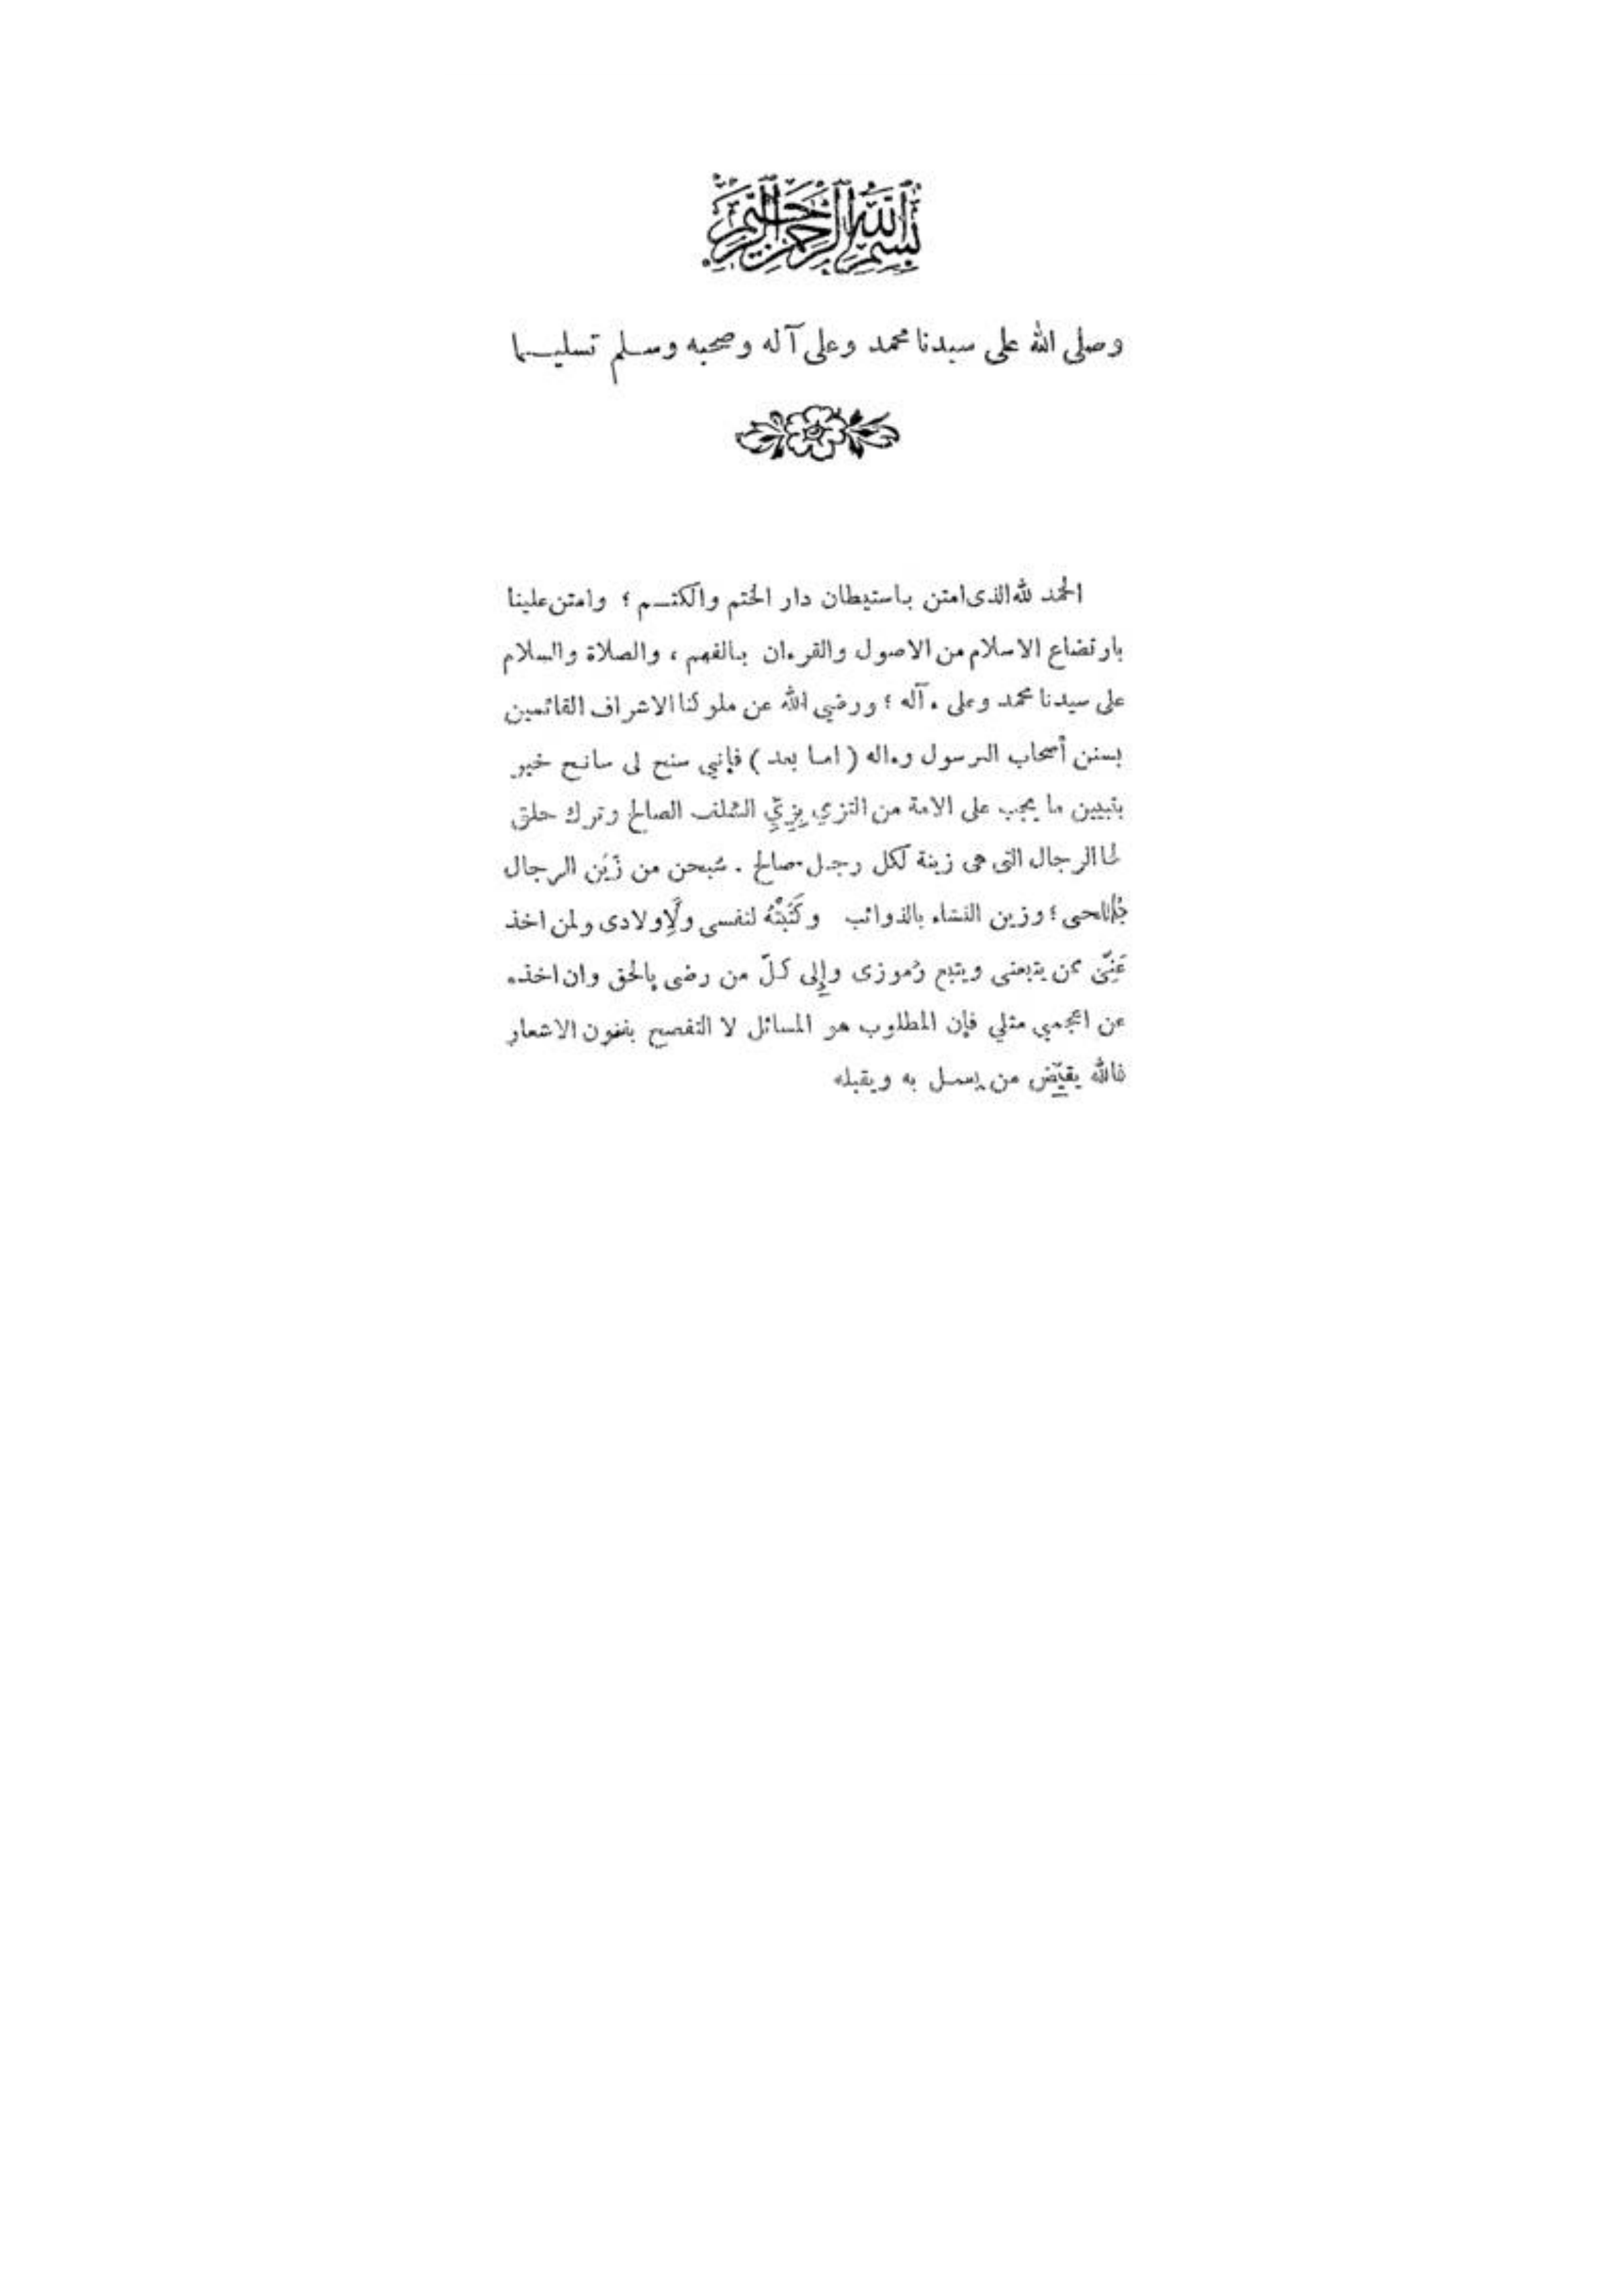 بسم الله الرحمن الرحيم
وصلى الله على سيدنا محمد وعلى آله وصحبه وسلم تسليما
الحمد لله الذى امتن باستيطان دار الختم والكتم ؛ وامتن علينا
بارتضاع الاسلام من الاصول والقرءان بالفهم ، والصلاة والسلام
على سيدنا محمد وعلى ءآله ؛ ورضي الله عن ملوكنا الاشراف القائمين
بسنن أصحاب الرسول وءاله ( اما بعد ) فإنني سنح لى سانح خير
بتبيين ما يجب على الامة من التزي بِزِيِّ السلف الصالح وترك حلق
لحا الرجال التى هى زينة لكل رجل صالح . سُبحن من زَيَن الرجال
باللحى ؛ وزين النساء بالذوائب وكَتَبْتُهُ لنفسى ولِأولادى ولمن اخذ
عَنِّى ممن يتبعنى ويتبع رُموزى وإِلى كلّ من رضى بالحق وان اخذه
عن اعجمي مثلي فإن المطلوب هو المسائل لا التفصيح بفنون الاشعار
فالله يقيّض من يعمل به ويقبله